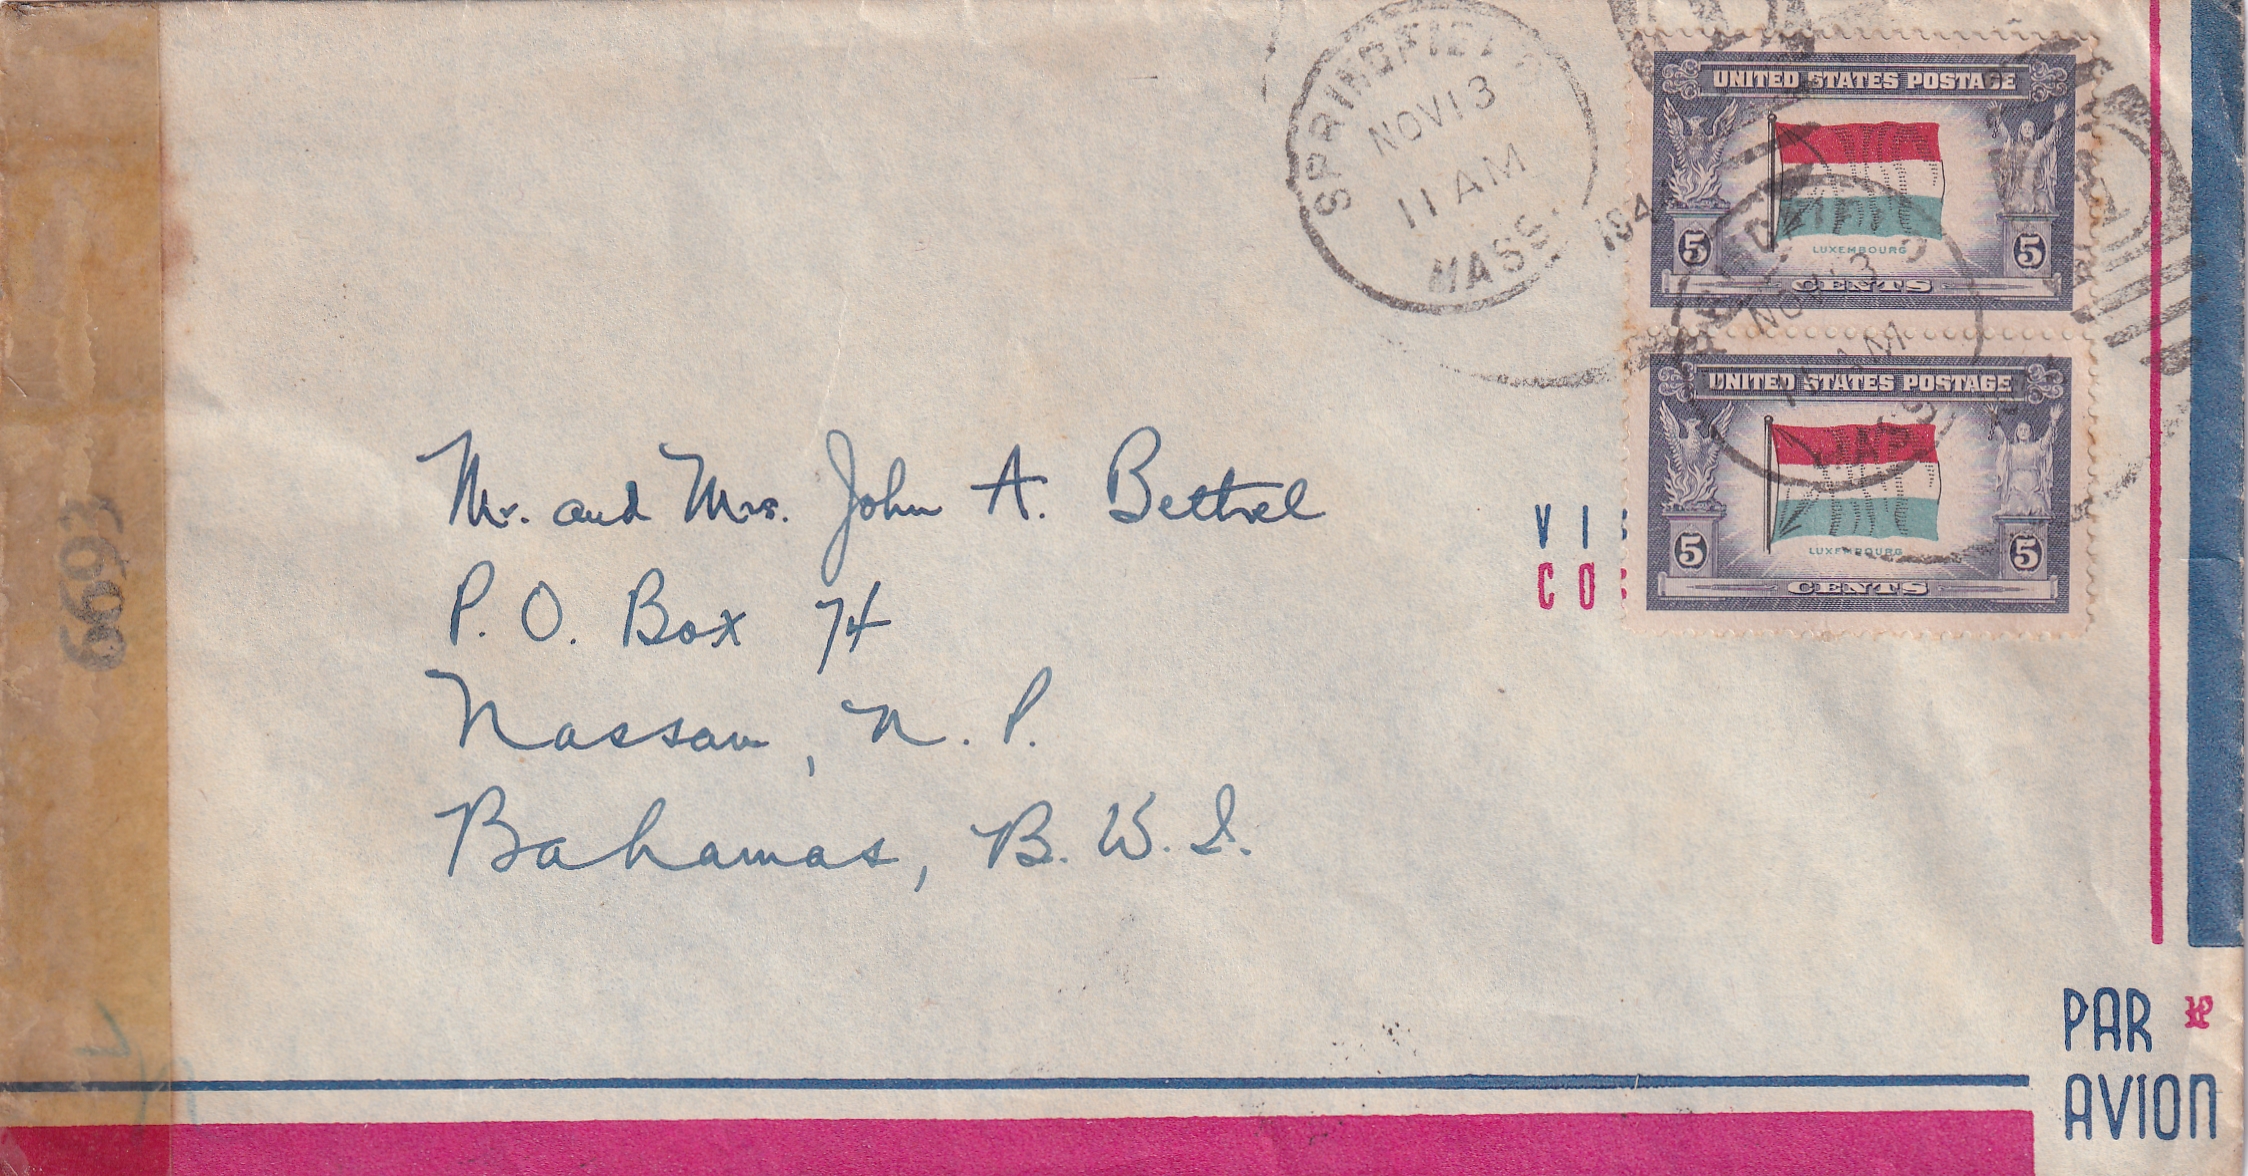 SPRINGFIELD
NOV 13
11 AM
MASS.
194
UNITED STATES POSTAGE
LUXEMBOURG
5 5
CENTS
NOV 13
AM
MASS
UNITED STATES POSTAGE
LUXEMBOURG
5 5
CENTS
6693
Mr. and Mrs. John A. Bethel
P. O. Box 74
Nassau, N. P.
Bahamas, B. W. I.
VI
CO
PAR
AVION